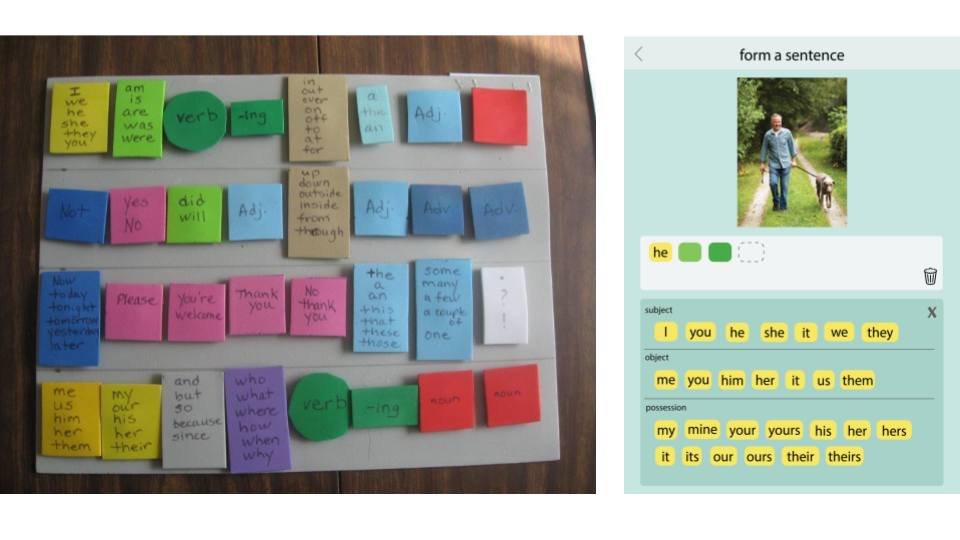 I
we
he
she
they
you
am
is
are
was
were
verb
-ing
in
out
over
on
off
to
at
for
a
the
an
Adj.
Not
Yes
No
did
will
Adj.
up
down
outside
inside
from
through
Adj.
Adv.
Adv.
Now
today
tonight
tomorrow
yesterday
later
Please
You're
welcome
Thank
you
No
thank
you
the
a
an
this
that
these
those
some
many
a few
a couple
of
one
.
?
!
me
us
him
her
them
my
our
his
her
their
and
but
so
because
since
who
what
where
how
when
why
verb
-ing
noun
noun
form a sentence
he
subject
X
I you he she it we they
object
me you him her it us them
possession
my mine your yours his her hers
it its our ours their theirs